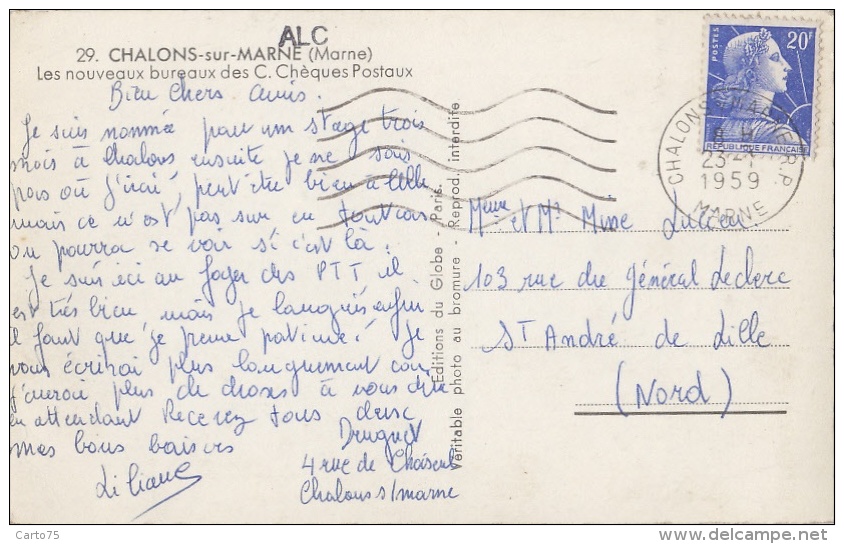 ALC
29. CHALONS-sur-MARNE (Marne)
Les nouveaux bureaux des C. Chèques Postaux
Bien chers amis.
Je suis nommée pour un stage trois
mois à Chalons ensuite je ne sais
pas où j'irai, peut être bien à Lille
mais ce n'est pas sur en tout cas
on pourra se voir si c'est là.
Je suis ici au foyer des PTT il
est très bien mais je languis enfin
il faut que je prenne patience! Je
vous écrirai plus longuement car
j'aurai plus de choses à vous dire
en attendant Recevez tous deux
mes bons baisers
Liliane
Druguet
4 rue de Choiseul
Chalons s/marne
Editions du Globe - Paris.
Véritable photo au bromure - Reprod. interdite
POSTES
20F
REPUBLIQUE FRANÇAISE
CHALONS-s-MARNE R.P.
23 - 1
1959
MARNE
et Mr
103 rue du Général Leclerc
ST André de Lille
(Nord)
Carto75
delcampe.net